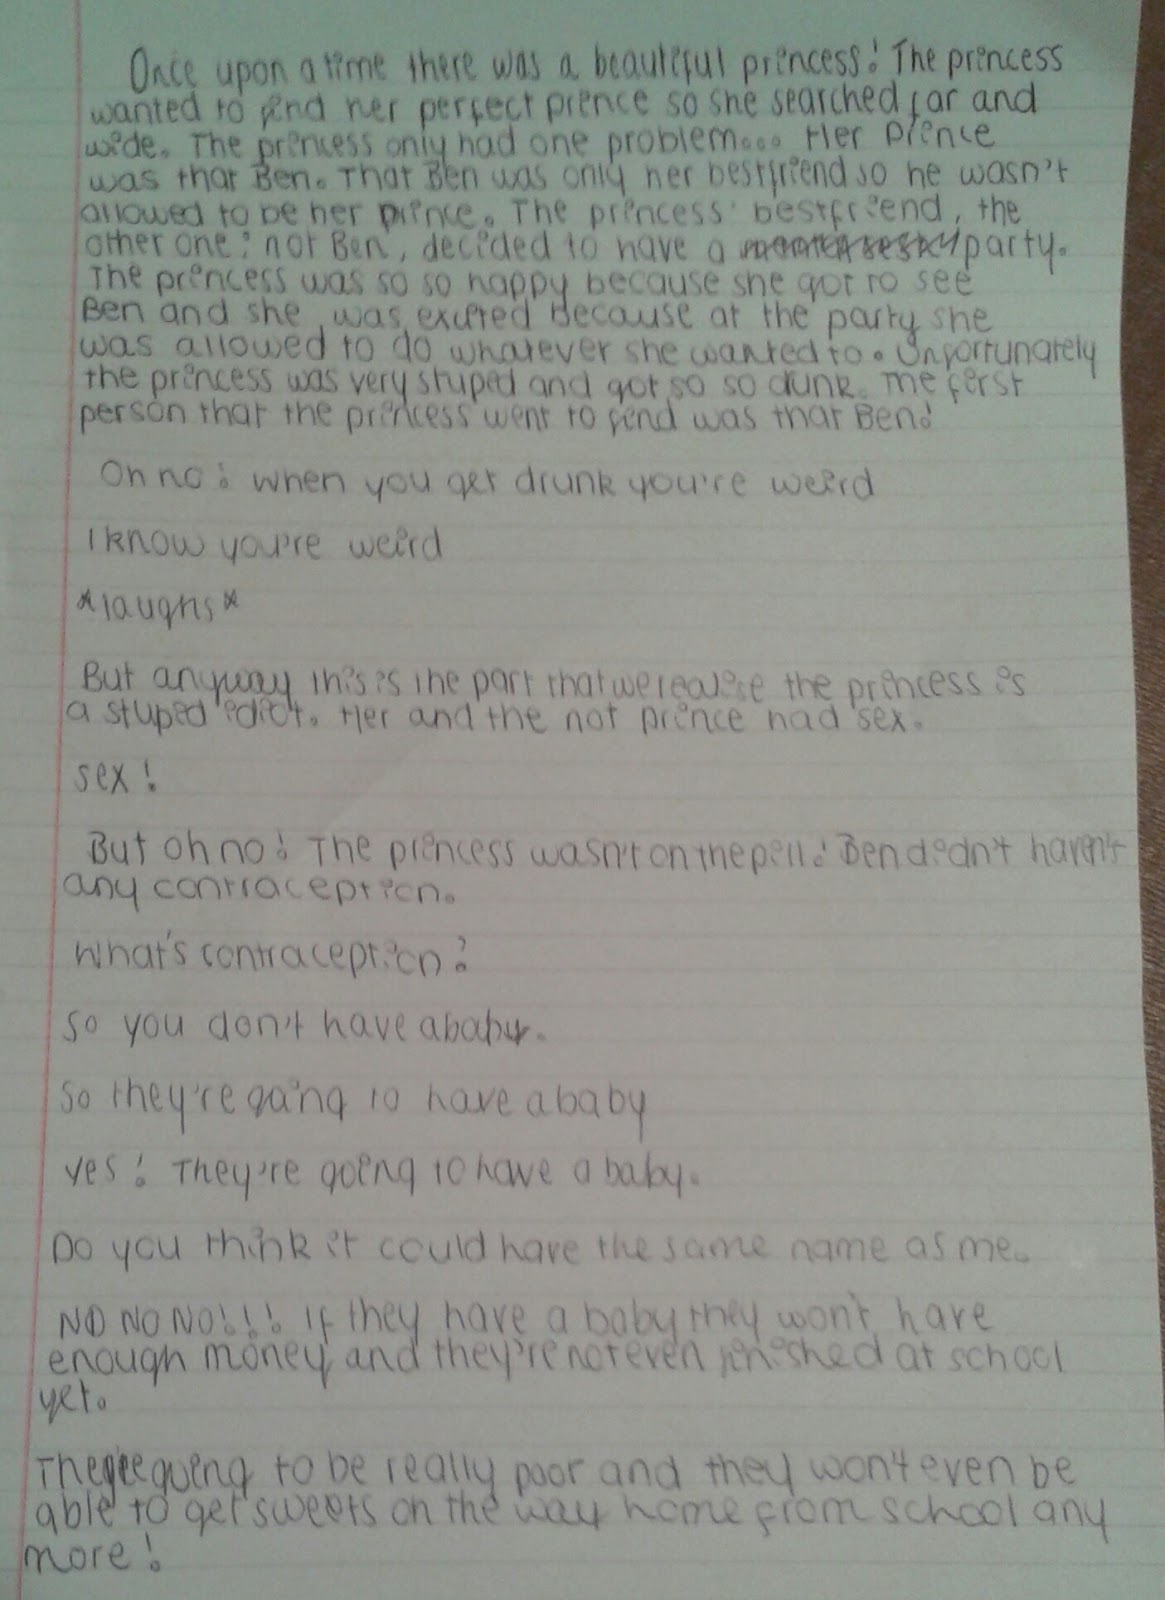 Once upon a time there was a beautiful princess! The princess
wanted to find her perfect prince so she searched far and
wide. The princess only had one problem... Her prince
was that Ben. That Ben was only her bestfriend so he wasn't
allowed to be her prince. The princess' bestfriend, the
other one; not Ben, decided to have a party.
The princess was so so happy because she got to see
Ben and she was excited because at the party she
was allowed to do whatever she wanted to. Unfortunately
the princess was very stupid and got so so drunk. The first
person that the princess went to find was that Ben!
Oh no! when you get drunk you're weird
I know you're weird
*laughs*
But anyway this is the part that we realise the princess is
a stupid idiot. Her and the not prince had sex.
sex!
But oh no! The princess wasn't on the pill! Ben didn't haven't
any contraception.
What's contraception?
So you don't have a baby.
So they're going to have a baby
Yes! They're going to have a baby.
Do you think it could have the same name as me.
NO NO NO!!! If they have a baby they won't have
enough money and they're not even finished at school
yet.
They're going to be really poor and they won't even be
able to get sweets on the way home from school any
more!